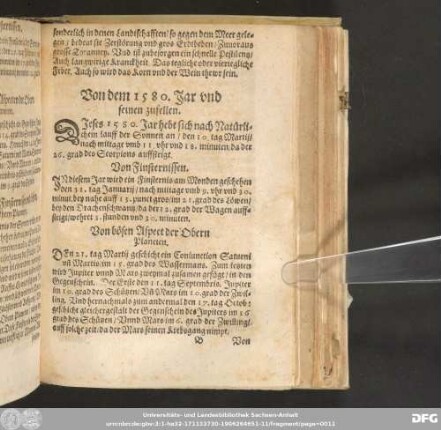 sonderlich in denen Landtschafften/ so gegen dem Meer gele-
gen/ bedeut sie Zerstörung vnd gros Erdtbeben/ Zuuoraus
grosse Vnd ist zubesorgen ein schnelle Pestilentz/
Auch langwirige Kranckheit. Das tegliche oder viertegliche
Feber. Auch so wird das Korn vnd der Wein thewr sein.
Von dem 1580. Jar vnd
seinen zufellen.
DJeses 1580. Jar hebt sich nach Natürli-
chem lauff der Sonnen an/ den 10. tag Martij/
nach mittage vmb 11. vhr vnd 18. minuten da der
26. grad des Scorpions auffsteigt.
Von Finsternissen.
JN diesem Jar wird ein Finsternis am Monden geschehen
den 31. tag Januarij/ nach mittage vmb 9. vhr vnd 30.
minut. bey nahe auff 15. punct gros/ im 21. grad des Löwen/
bey den Drachenschwantz/ da der 12. grad der Wagen auff-
steigt/ wehret 2. stunden vnd 20. minuten.
Von bösen Aspect der Obern
Planeten.
DEn 21. tag Martij geschicht ein Coniunction Saturni
vñ Martis/ im 15. grad des Wassermans. Zum letzten
wird Jupiter vnnd Mars zweymal zusamen gefügt/ in dem
Gegenschein. Der Erste den 11. tag Septembris. Jupiter
im 10. grad des Schützen/ Vñ Mars im 10. grad der Zwil-
ling. Vnd hernachmals zum andermal den 17. tag Octob:
geschicht gleicher gestalt der Gegenschein des Jupiters im 16.
grad des Schützen/ Vnnd Mars im 16. grad der Zwilling/
auff solche zeit/ da der Mars seinen Krebsgang nimpt.
B Von
Universitäts- und Landesbibliothek Sachsen-Anhalt
urn:nbn:de:gbv:3:1-ha32-171133730-1906264651-11/fragment/page=0011
DFG